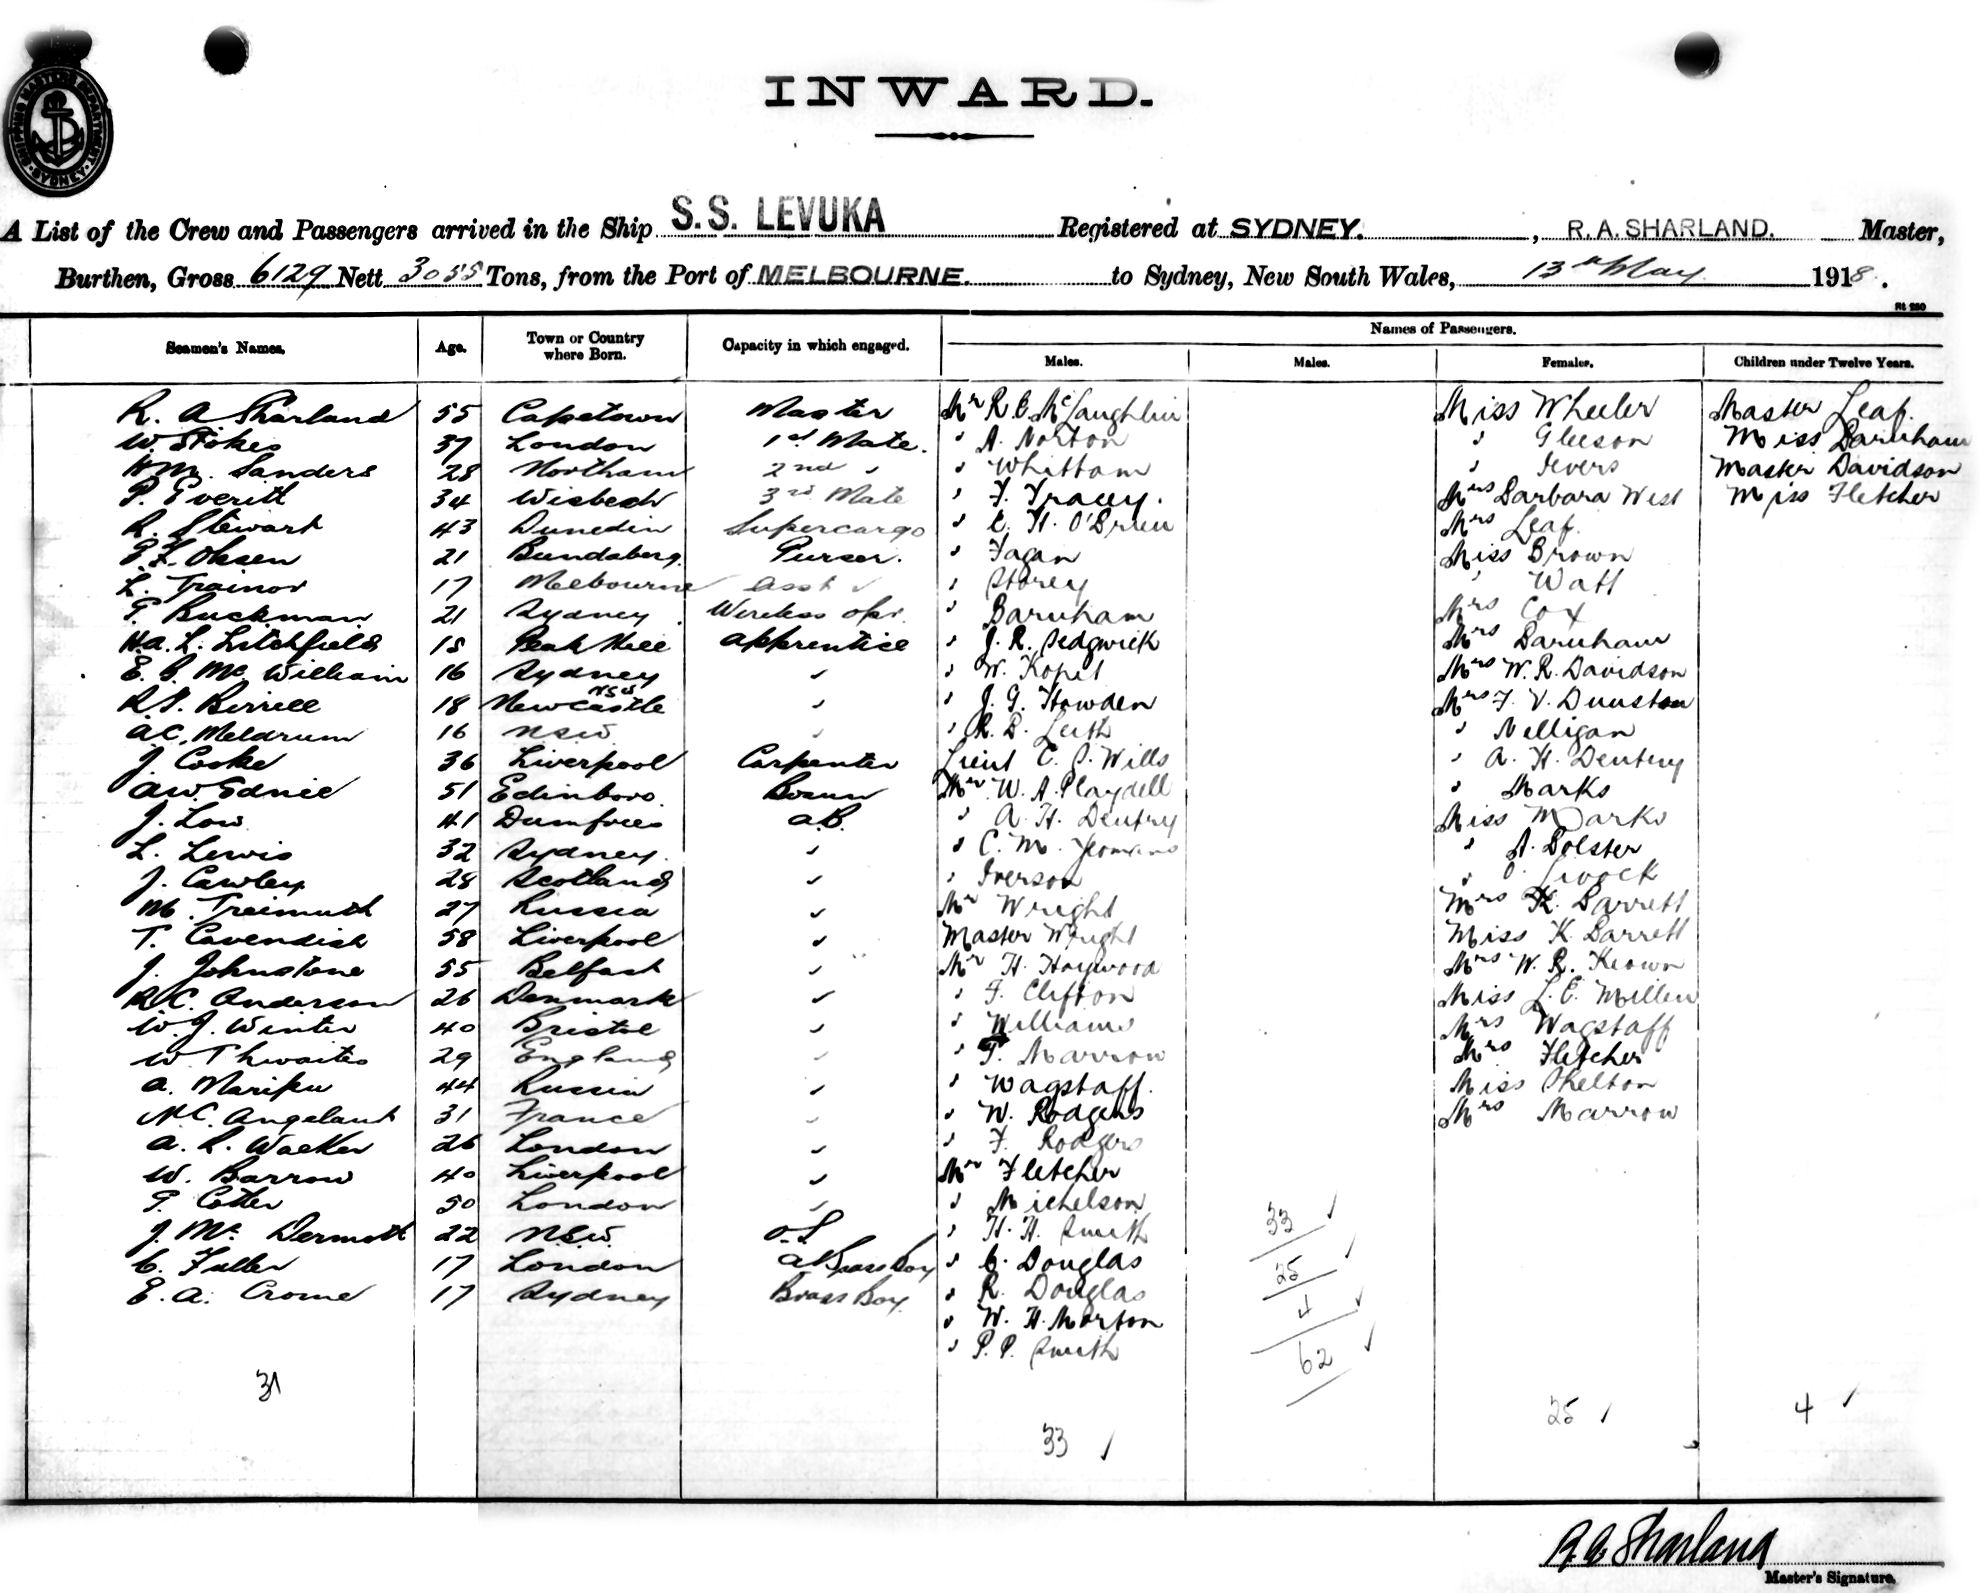 SHIPPING MASTER'S DEPARTMENT SYDNEY
INWARD.
A List of the Crew and Passengers arrived in the Ship S.S. LEVUKA Registered at SYDNEY. , R.A. SHARLAND. Master,
Burthen, Gross 6129 Nett 3055 Tons, from the Port of MELBOURNE. to Sydney, New South Wales, 13th May 1918.
Names of Passengers.
Seamen's Names. Age. Town or Country where Born. Capacity in which engaged. Males. Males. Females. Children under Twelve Years.
R. A Sharland 55 Capetown Master Mr R. C. McLaughlin Miss Wheeler Master Leaf.
W. Stokes 37 London 1st Mate. " A. Norton " Gleeson Miss Barnham
Wm. Sanders 28 Northam 2nd " " Whittam " Ievers Master Davidson
P. Everitt 34 Wisbech 3rd Mate " F. Tracey. Mrs Barbara West Miss Fletcher
R. Stewart 43 Dunedin Supercargo " C. H. O'Brien Mrs Leaf.
Olsen 21 Bundaberg. Purser. " Fagan Miss Brown
L. Trainor 17 Melbourne Asst " " Storey " Watt
Buckman 21 Sydney. Wireless Opr. " Barnham Mrs Cox
H.A. L. Litchfield 15 Peak Hill Apprentice " J. R. Sedgwick Mrs Barnham
E. G. Mc William 16 Sydney " " W. Kopit Mrs W. R. Davidson
Birrell 18 Newcastle NSW " " J. G. Howden Mrs F. V. Dunstan
A.C. Meldrum 16 NSW " " R. B. Leith " Nelligan
J. Cooke 36 Liverpool Carpenter Lieut C. P. Wills " A. H. Dentry
A.W. Ednie 51 Edinboro. Bosun Mr W. A. Playdell " Marks
J. Low 41 Dumfries A.B. " A. H. Dentry Miss Marks
L. Lewis 32 Sydney. " " C. M. Yeomans " A. Bolster
J. Cawley. 28 Scotland " " Iverson " Livock
M. Treimuth 27 Russia " Mr Wright Mrs K. Barrett
T. Cavendish 58 Liverpool " Master Wright Miss K Barrett
J. Johnstone 55 Belfast " Mr H. Haywood Mrs W. R. Keown
R.C. Anderson 26 Denmark " " F. Clifton Miss L. E. Millen
W. J. Winter 40 Bristol " " Williams Mrs Wagstaff
W Thwaites 29 England " " Marrow Mrs Fletcher
A. 44 Russia " " Wagstaff. Miss Shelton
N.C. Angelant 31 France " " W. Rodgers Mrs Marrow
A. R. Walker 26 London " " F. Rodgers
W. Barrow 40 Liverpool " Mr Fletcher
Cotter 50 London " " Michelson
J. Mc Dermott 22 N.S.W. O.S. " H. H. Smith
C. Fuller 17 London Brass Boy " C. Douglas
E. A. Crome 17 Sydney Brass Boy. " R. Douglas
" W. H. Morton
" P. P. Smith
33
25
4
62
31 33 25 4
R. A Sharland
Master's Signature.